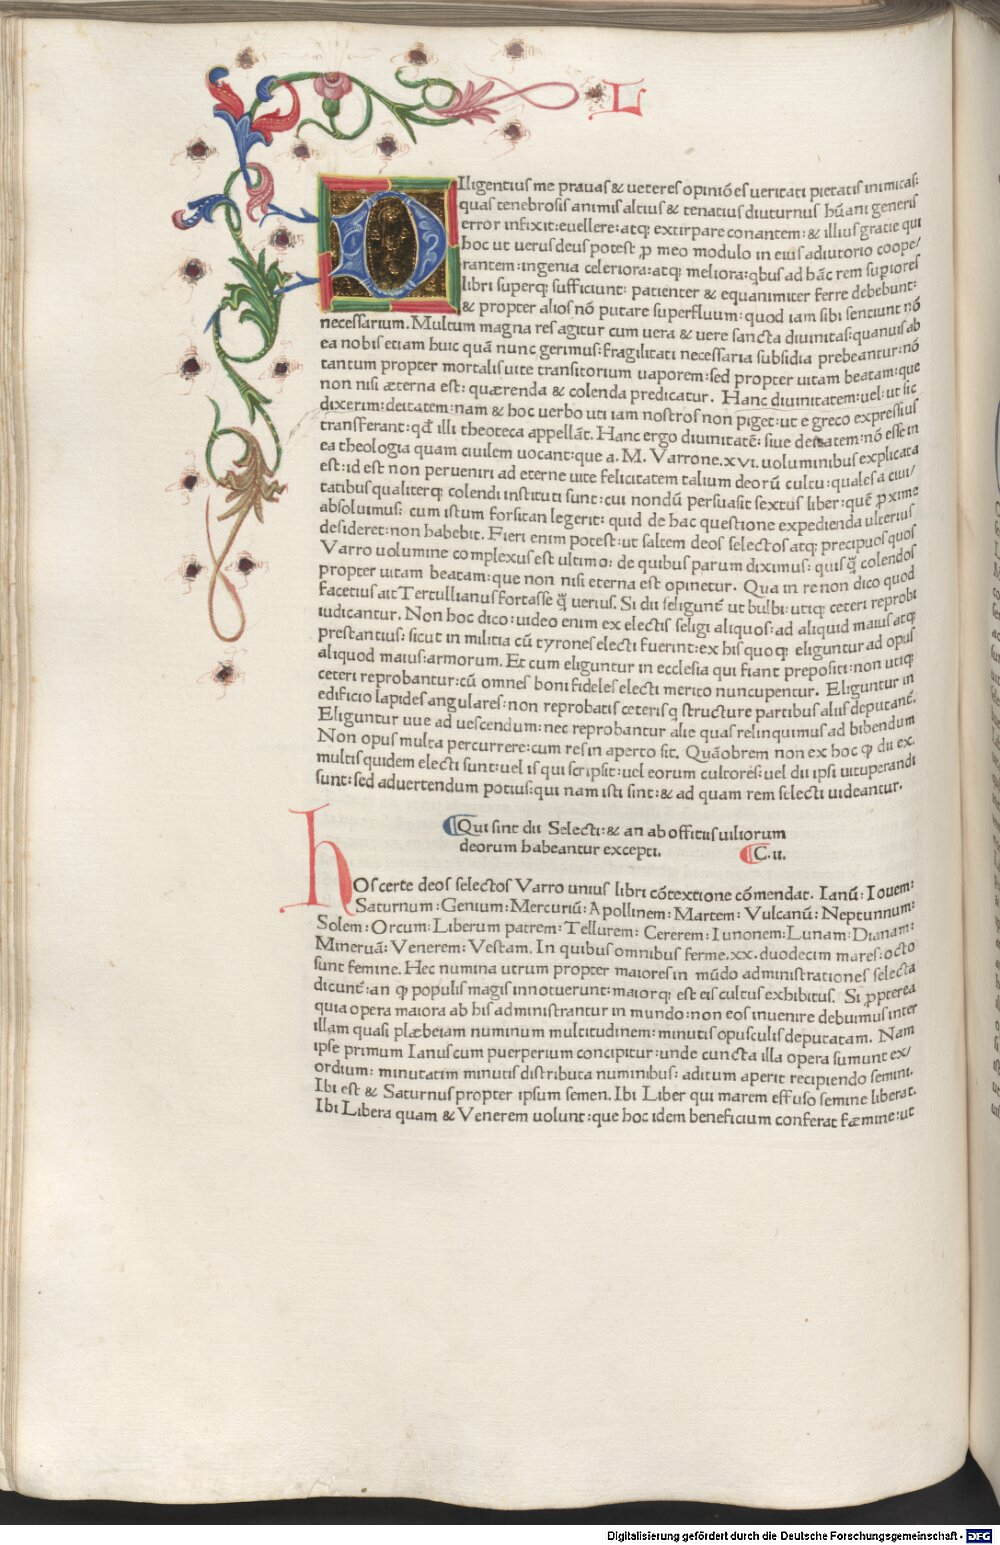 L
DIligentius me prauas & ueteres opiniões ueritati pietatis inimicas:
quas tenebrosis animis altius & tenatius diuturnus hũani generis
error infixit: euellere: atq; extirpare conantem: & illius gratie qui
hoc ut uerus deus potest ꝓ meo modulo in eius adiutorio coope/
rantem: ingenia celeriora: atq; meliora: qbus ad hãc rem supiores
libri superq; sufficiunt: patienter & equanimiter ferre debebunt:
& propter alios nõ putare superfluum: quod iam sibi sentiunt nõ
necessarium. Multum magna res agitur cum uera & uere sancta diuinitas: quanuis ab
ea nobis etiam huic quã nunc gerimus: fragilitati necessaria subsidia prebeantur: nõ
tantum propter mortalis uite transitorium uaporem: sed propter uitam beatam: que
non nisi æterna est: quærenda & colenda predicatur. Hanc diuinitatem: uel: ut sic
dixerim: deitatem: nam & hoc uerbo uti iam nostros non piget: ut e greco expressius
transferant: qđ illi theoteca appellãt. Hanc ergo diuinitatẽ: siue deitatem: nõ esse in
ea theologia quam ciuilem uocant: que a. M. Varrone. xvi. uoluminibus explicata
est: id est non perueniri ad eterne uite felicitatem talium deorũ cultu: quales a ciui/
tatibus qualiterq; colendi instituti sunt: cui nondũ persuasit sextus liber: quẽ ꝓxime
absoluimus: cum istum forsitan legerit: quid de hac questione expedienda ulterius
desideret: non habebit. Fieri enim potest: ut saltem deos selectos atq; precipuos quos
Varro uolumine complexus est ultimo: de quibus parum diximus: quisq̃ colendos
propter uitam beatam: que non nisi eterna est opinetur. Qua in re non dico quod
facetius ait Tertullianus fortasse q̃ uerius. Si dii seligunt̃ ut bulbi: utiq; ceteri reprobi
iudicantur. Non hoc dico: uideo enim ex electis seligi aliquos: ad aliquid maius atq;
prestantius: sicut in militia cũ tyrones electi fuerint: ex his quoq; eliguntur ad opus
aliquod maius: armorum. Et cum eliguntur in ecclesia qui fiant prepositi: non utiq;
ceteri reprobantur: cũ omnes boni fideles electi merito nuncupentur. Eliguntur in
edificio lapides angulares: non reprobatis ceteris q structure partibus aliis deputant̃.
Eliguntur uue ad uescendum: nec reprobantur alie quas relinquimus ad bibendum
Non opus multa percurrere: cum res in aperto sit. Quãobrem non ex hoc ꝙ dii ex.
multis quidem electi sunt: uel is qui scripsit: uel eorum cultores: uel dii ipsi uituperandi
sunt: sed aduertendum potius: qui nam isti sint: & ad quam rem selecti uideantur.
Qui sint dii Selecti: & an ab officiis uiliorum
deorum habeantur excepti. C. ii.
hOs certe deos selectos Varro unius libri cõtextione cõmendat. Ianũ: Iouem:
Saturnum: Genium: Mercuriũ: Apollinem: Martem: Vulcanũ: Neptunnum:
Solem: Orcum: Liberum patrem: Tellurem: Cererem: Iunonem: Lunam: Dianam:
Mineruã: Venerem: Vestam. In quibus omnibus ferme. xx. duodecim mares: octo
sunt femine. Hec numina utrum propter maiores in mũdo administrationes selecta
dicunt̃: an ꝙ populis magis innotuerunt: maiorq; est eis cultus exhibitus. Si ꝓpterea
quia opera maiora ab his administrantur in mundo: non eos inuenire debuimus inter
illam quasi plæbeiam numinum multitudinem: minutis opusculis deputatam. Nam
ipse primum Ianus cum puerperium concipitur: unde cuncta illa opera sumunt ex/
ordium: minutatim minutis distributa numinibus: aditum aperit recipiendo semini.
Ibi est & Saturnus propter ipsum semen. Ibi Liber qui marem effuso semine liberat.
Ibi Libera quam & Venerem uolunt: que hoc idem beneficium conferat fæmine: ut
Digitalisierung gefördert durch die Deutsche Forschungsgemeinschaft - DFG